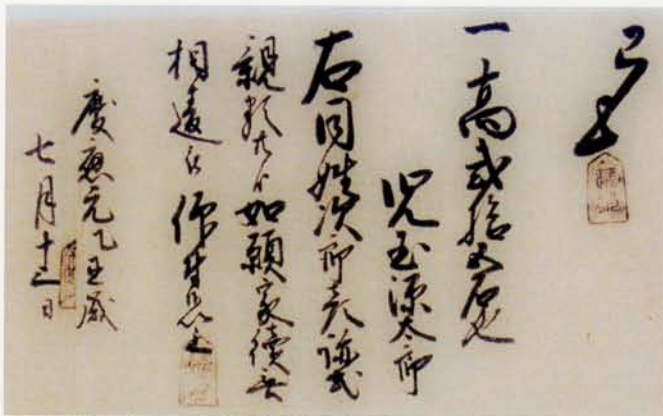 一高弐拾五石也
児玉源太郎
右同姓次郎彦跡式
親類共より如願家続無
相違被仰付
慶應元乙丑歳
七月十二日